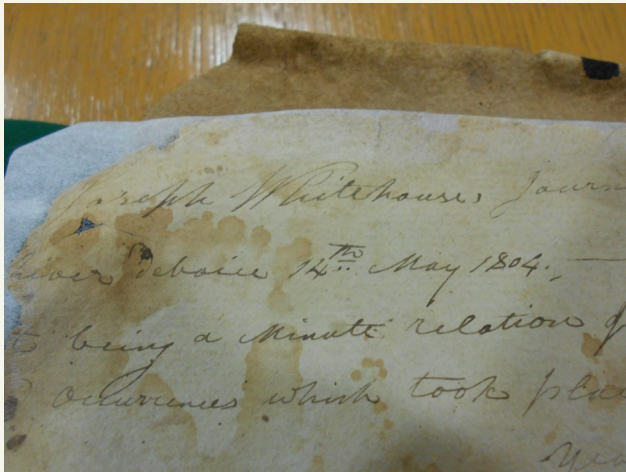 Joseph Whitehouses Journ
River deboise 14th May 1804.,
t being a Minute relation of
occurrences which took pla
Yea